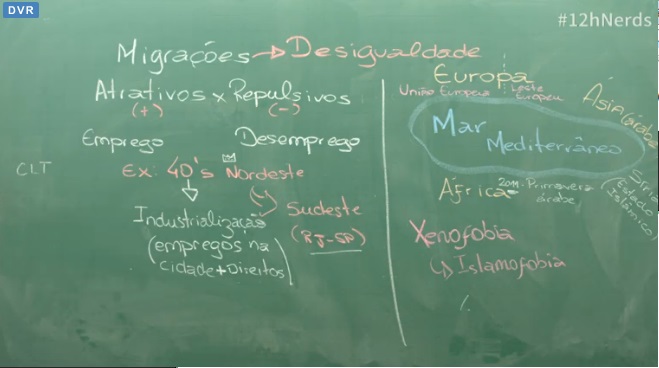 DVR
#12hNerds
Migrações → Desigualdade
Atrativos x Repulsivos
(+) (-)
Emprego Desemprego
CLT
Ex: 40's Nordeste
Industrialização
(empregos na
cidade + Direitos)
Sudeste
(RJ-SP)
Europa
União Europeia Leste
Europeu
Ásia (árabe)
Mar
Mediterrâneo
África
2011: Primavera
árabe
Síria
(Estado
Islâmico)
Xenofobia
↳ Islamofobia